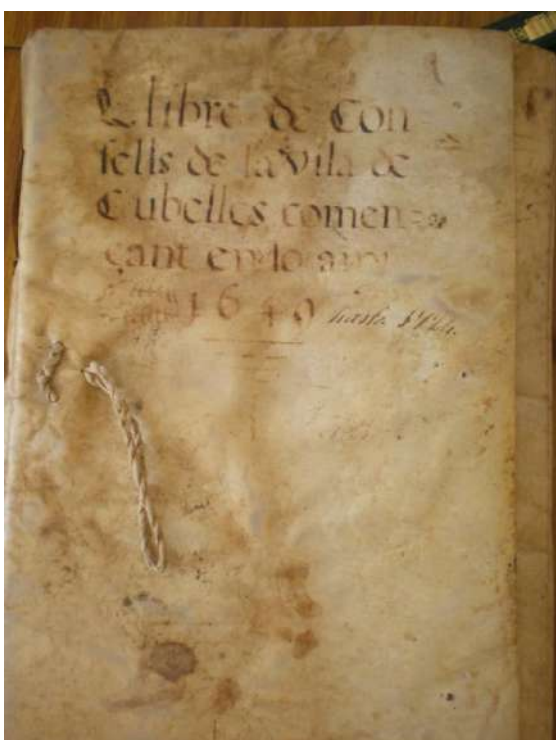 Llibre de Con
sells de la Vila de
Cubelles comen=
çant en lo any
1649 hasta